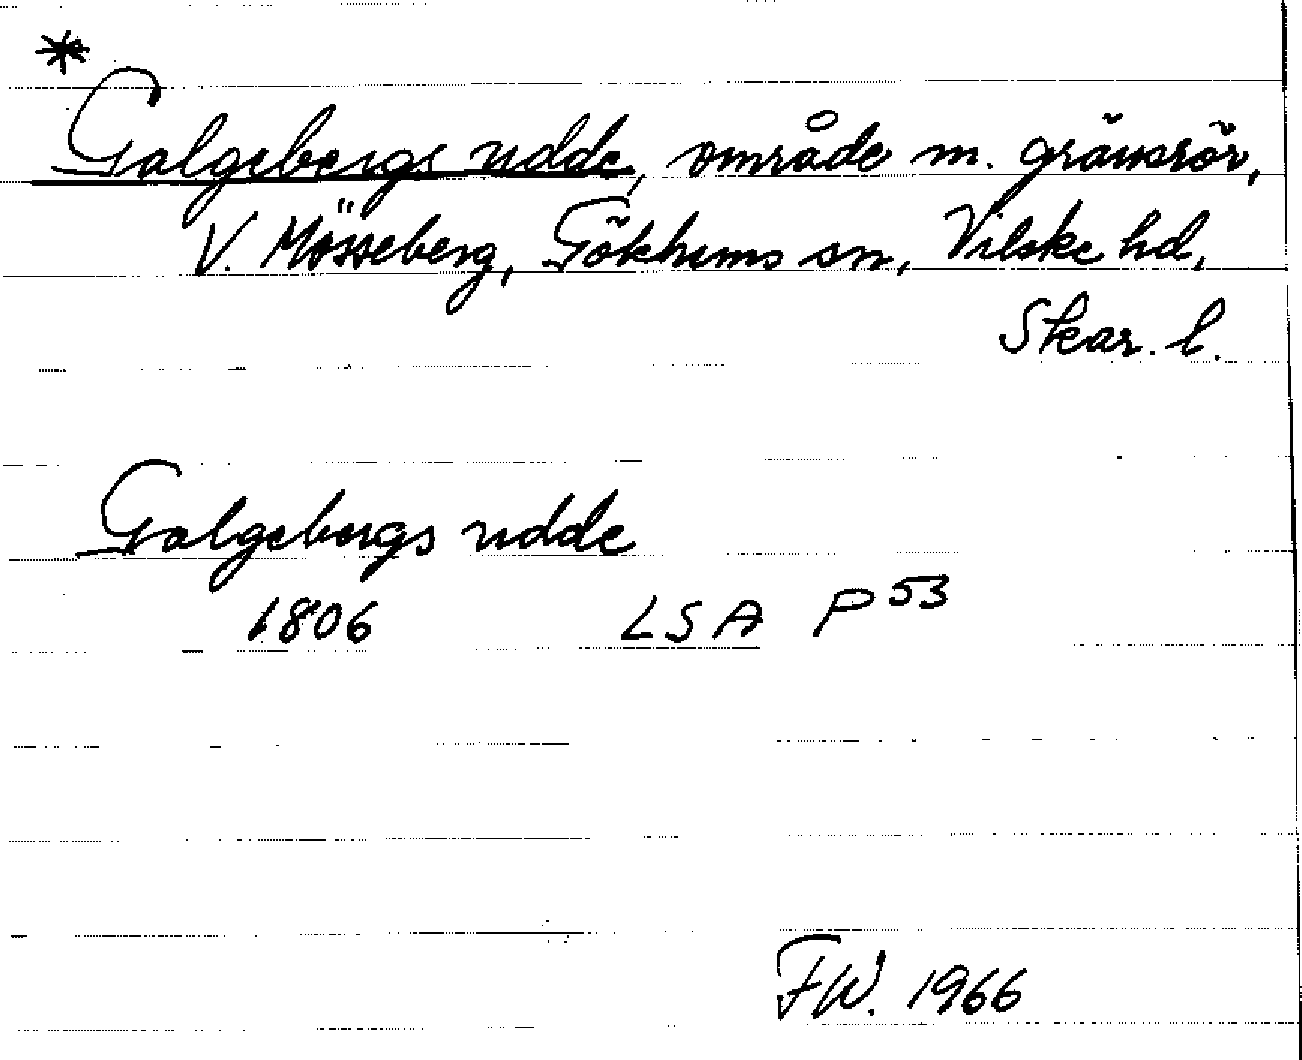 *
Galgebergs udde, område m. gränsrör,
V. Mösseberg, Gökhems sn, Vilske hd,
Skar. l.
Galgebergs udde
1806 LSA P 53
FW. 1966